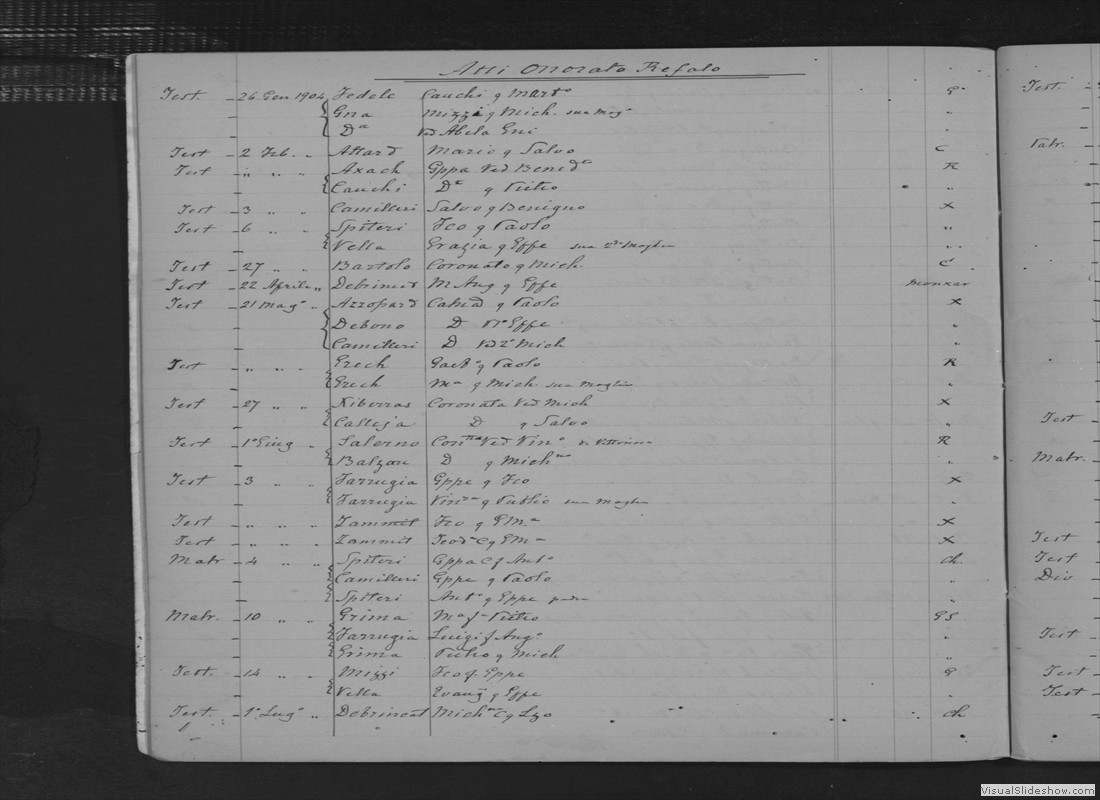 Atti Onorato Refalo
Test. 26 Gen 1904 Fedele Cauchi q Mart° G
Gna Mizzi q Mich. sua mog° "
Dª Ved Abela Gni "
Test 2 Feb. " Attard Mario q Salvo C
Test " " " Axach Gppa Ved Benedª R
Cauchi Dª q Pietro "
Test 3 " " Camilleri Salvo q Benigno X
Test 6 " " Spiteri Fco q Paolo "
Vella Grazia q Gppe sua 2ª Moglie "
Test 27 " " Bartolo Coronato q Mich. C
Test 22 Aprile " Debrincat M Ang q Gppe Munxar
Test 21 Mag° " Azzopard q Paolo X
Debono D Gppe "
Camilleri D Mich "
Test " " " Grech Gaet° q Paolo R
Grech Mª q Mich. sua Moglie "
Test 27 " " Xiberras Coronata Ved Mich X
Calleja D q Salvo "
Test 1° Giug " Salerno Ved Vin° R
Balzan D q Mich "
Test 3 " " Farrugia Gppe q Fco X
Farrugia q Public sua Moglie "
Test " " " Zammit Fco q X
Test " " " Zammit X
Matr 4 " " Spiteri Gppa f Ant° Ch.
Camilleri Gppe q Paolo "
Spiteri Ant° q Gppe "
Matr. 10 " " Grima Mª f Pietro GS
Farrugia Luigi f Ang° "
Grima Pietro q Mich "
Test. 14 " " Mizzi Fco q. Gppe G
Vella Evang q Gppe "
Test. 1° Lug° " Debrincat q Lzo Ch
Test.
Matr.
Test
Matr.
Test
Test
Div
Test
Test
Test
VisualSlideshow.com